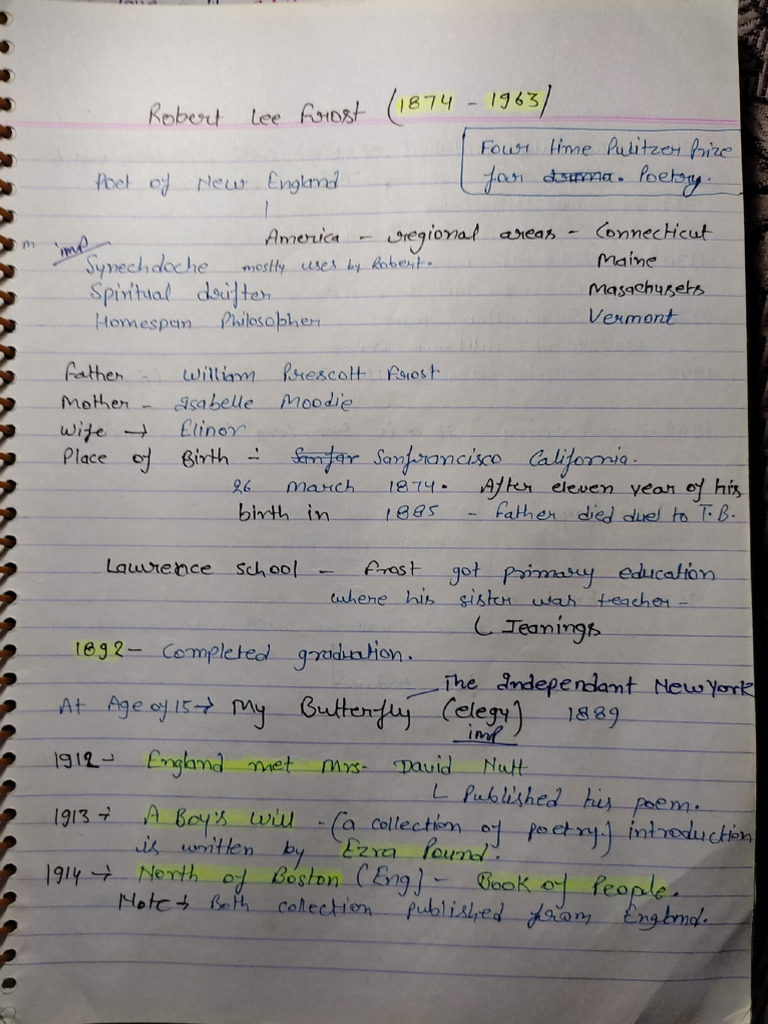 Robert Lee Frost (1874 - 1963)
Four time Pulitzer Prize
for drama. Poetry.
Poet of New England
America - regional areas - Connecticut
imp
Maine
Synechdoche mostly uses by Robert.
Masachusets
Spiritual drifter
Vermont
Homespan Philosopher
Father - William Prescott Frost
Mother - Isabelle Moodie
Wife → Elinor
Place of Birth :- Sanfar Sanfrancisco California.
26 March 1874. After eleven year of his
birth in 1885 - father died duel to T.B.
Lawrence School - Frost got primary education
where his sister was teacher -
Jeanings
1892 - Completed graduation.
The Independant New York
At Age of 15 → My Butterfly (elegy) 1889
imp
1912 - England met Mrs- David Nutt
Published his poem.
1913 → A Boy's Will - (a collection of poetry.) introduction
is written by Ezra Pound.
1914 → North of Boston (Eng) - Book of People.
Note → Both collection published from England.